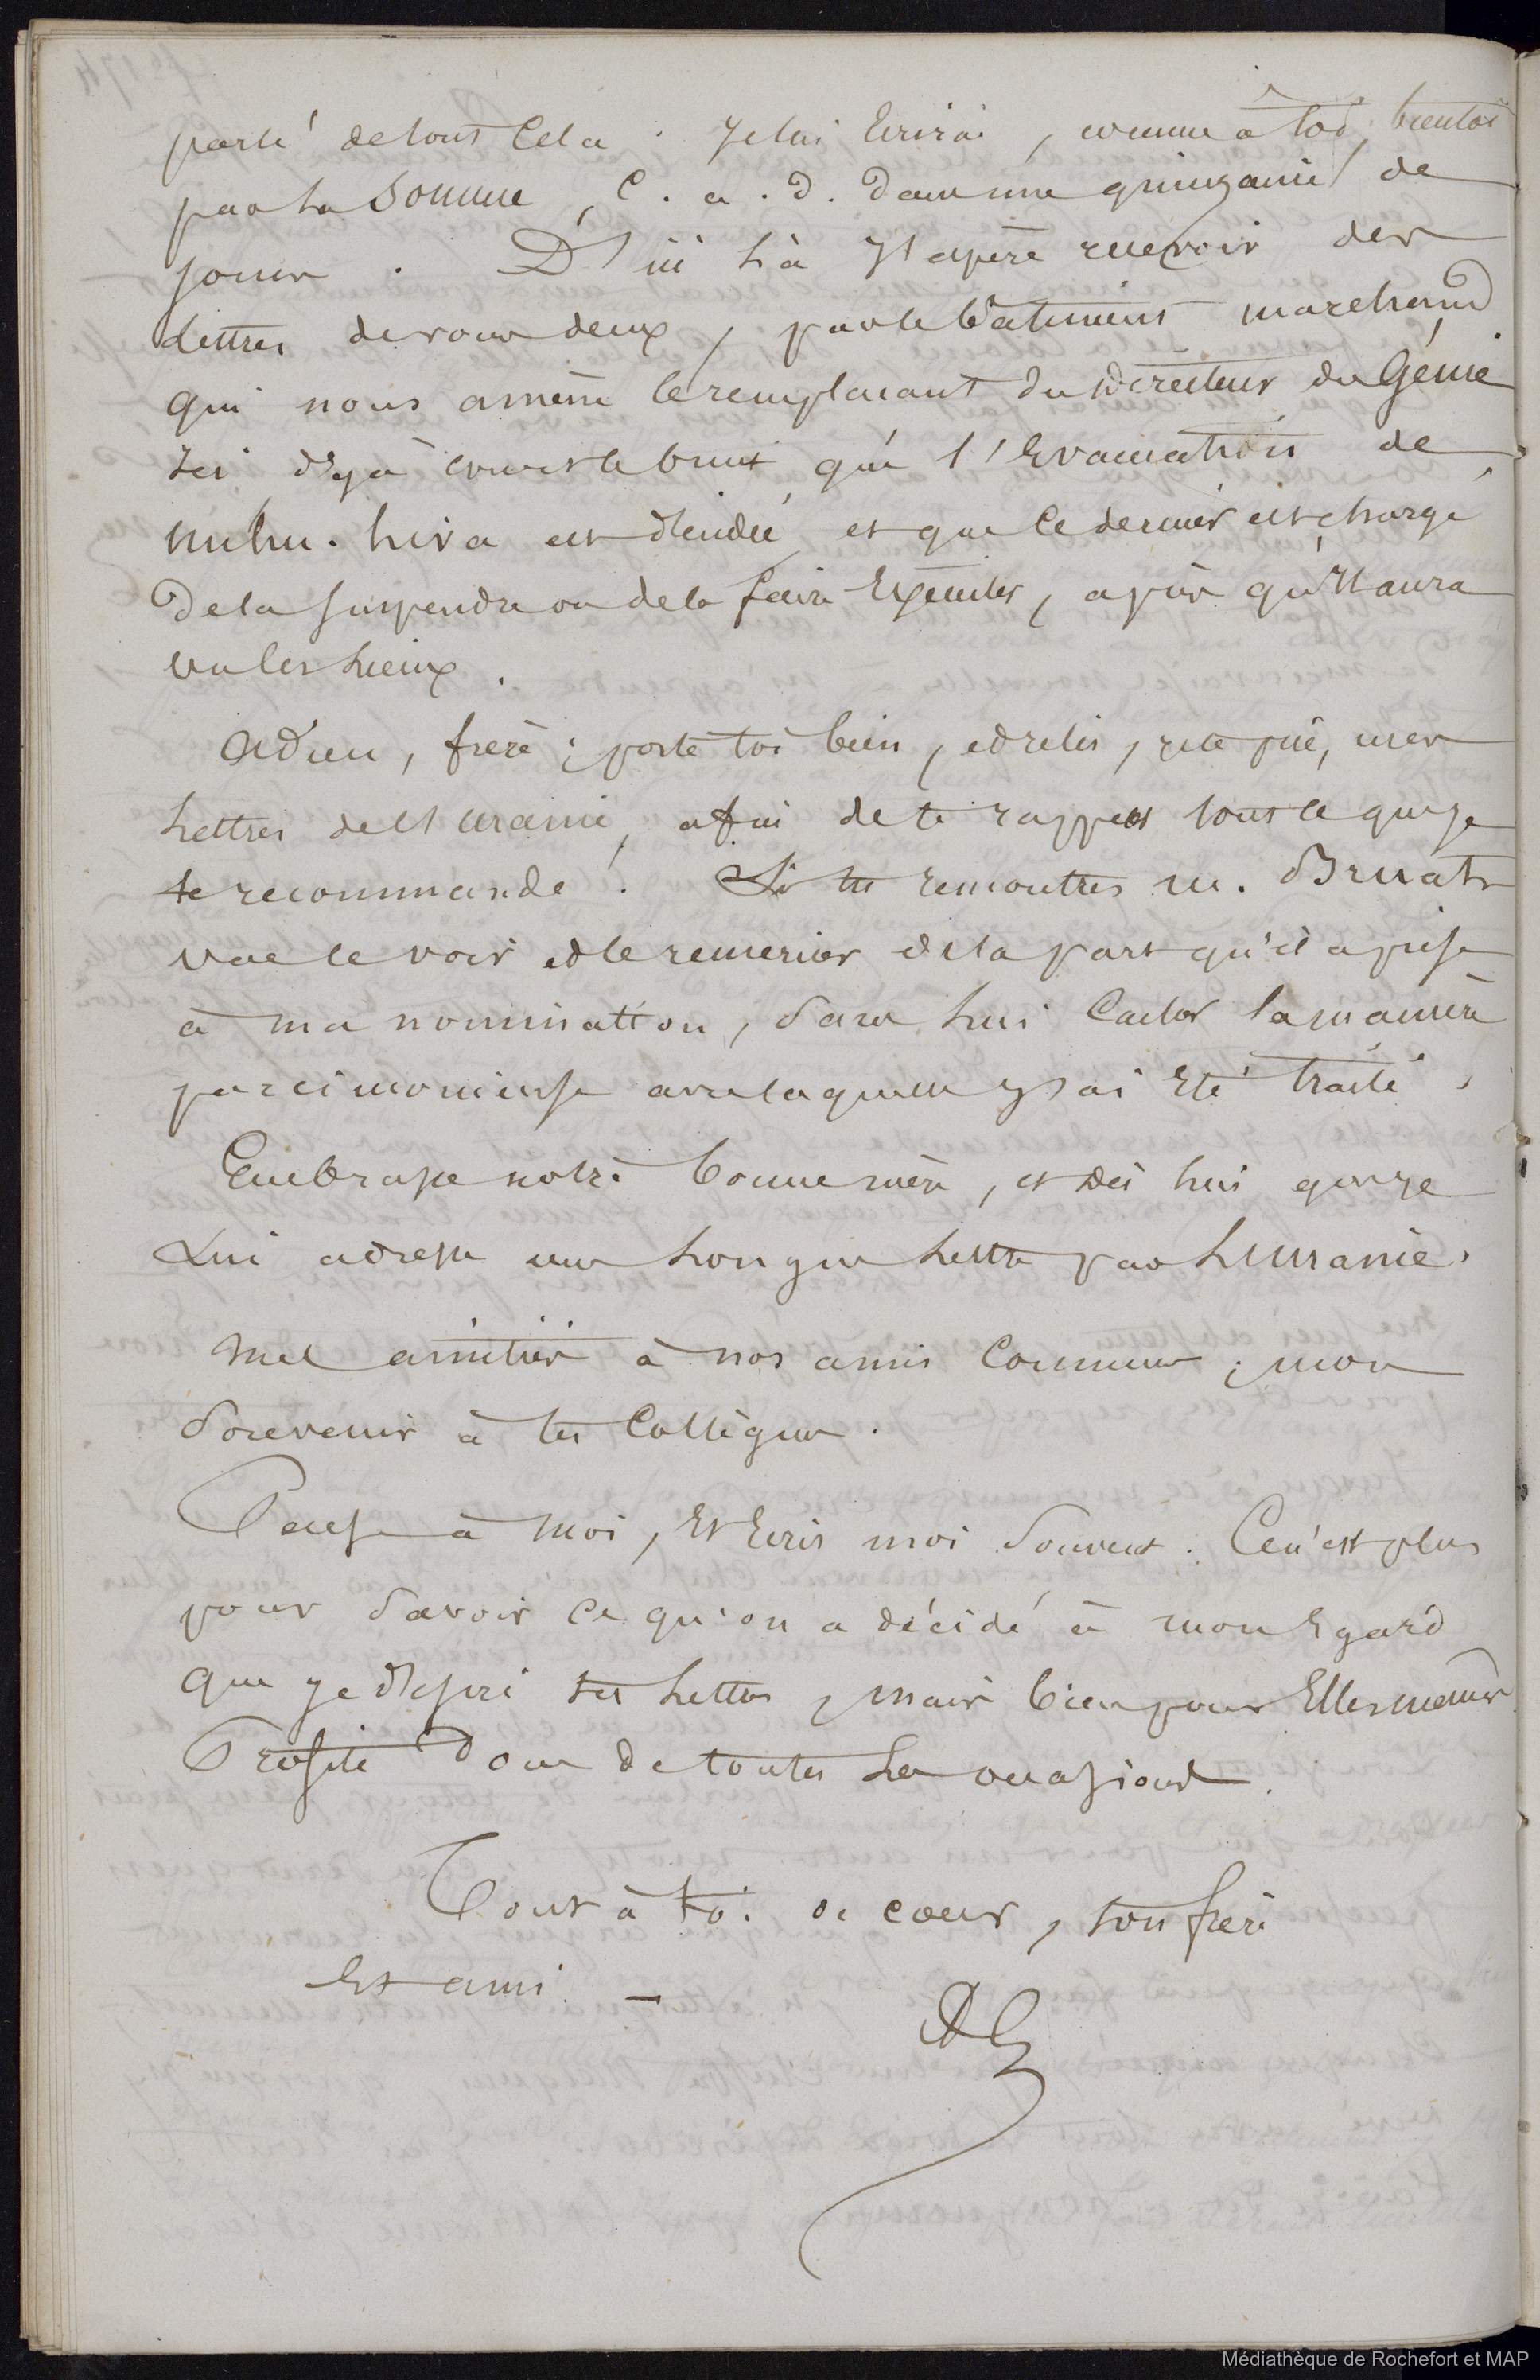 parlé de tout cela. Je lui Ecrirai, comme à toi, bientôt
par la Somme, C. a. d. dans une quinzaine de
jours. D'ici là j'espère recevoir des
lettres de vous deux, par le bâtiment marchand
qui nous amène le remplacant du Directeur du Génie
Ici déjà court le bruit que l'Evacuation de
nuhu. hiva est décidée et que ce dernier est chargé
de la suspendre ou de la faire Exécuter, après qu'Il aura
vu les Lieux.
Adieu, frère; porte toi bien, et relis, je te prie, mes
Lettres de l'uranie, afin de te rappeler tout ce que je
te recommande. Si tu rencontres m. Bruat
vas le voir et le remercier de la part qu'il a prise
à ma nomination, sans Lui Cacher la manière
parcimonieuse avec laquelle j'ai Eté traité.
Embrasse notre bonne mère, et dis Lui que je
Lui adresse une Longue Lettre par L'uranie.
Mes amitiés à nos amis Communs; mon
Souvenir à tes Collègues.
Pense à moi, Et Ecris moi Souvent. Ce n'est plus
pour Savoir ce qu'on a décidé à mon Egard
que je désire tes Lettres, mais bien pour Elles mêmes
Profite donc de toutes Les occasions.
Tout à toi de coeur, ton frère
Et ami. —
Médiathèque de Rochefort et MAP